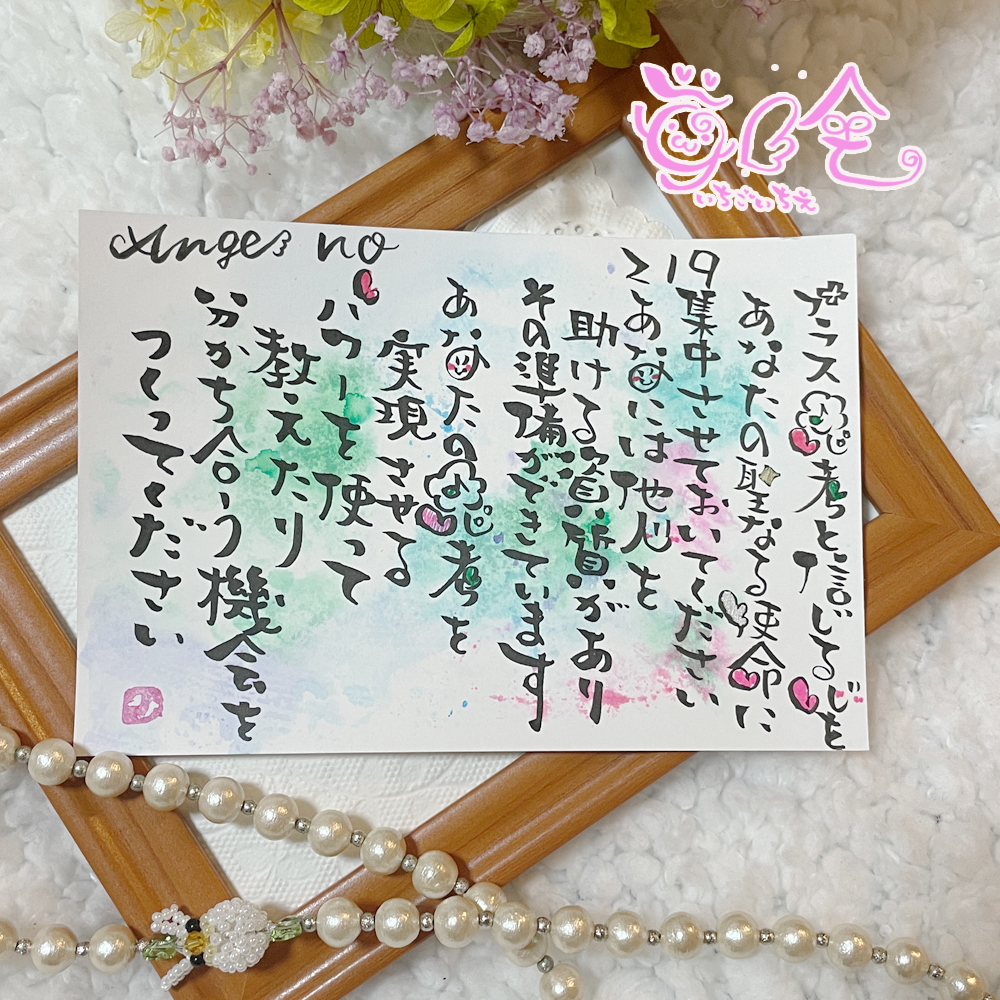 Angel no
192
プラス思考と信じる心を
あなたの聖なる使命に
集中させておいてください
あなたには他人を
助ける資質があり
その準備ができています
あなたの思考を
実現させる
パワーを使って
教えたり
分かち合う機会を
つくってください
いちごいちえ